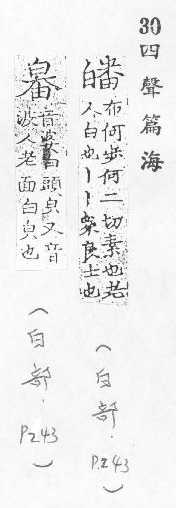 30 四聲篇海
皤 布何步何二切素也老人白也丨丨衆良士也
(白部.P.243)
皤 音波番頭皃又音波人老面白皃也
(白部.P243)